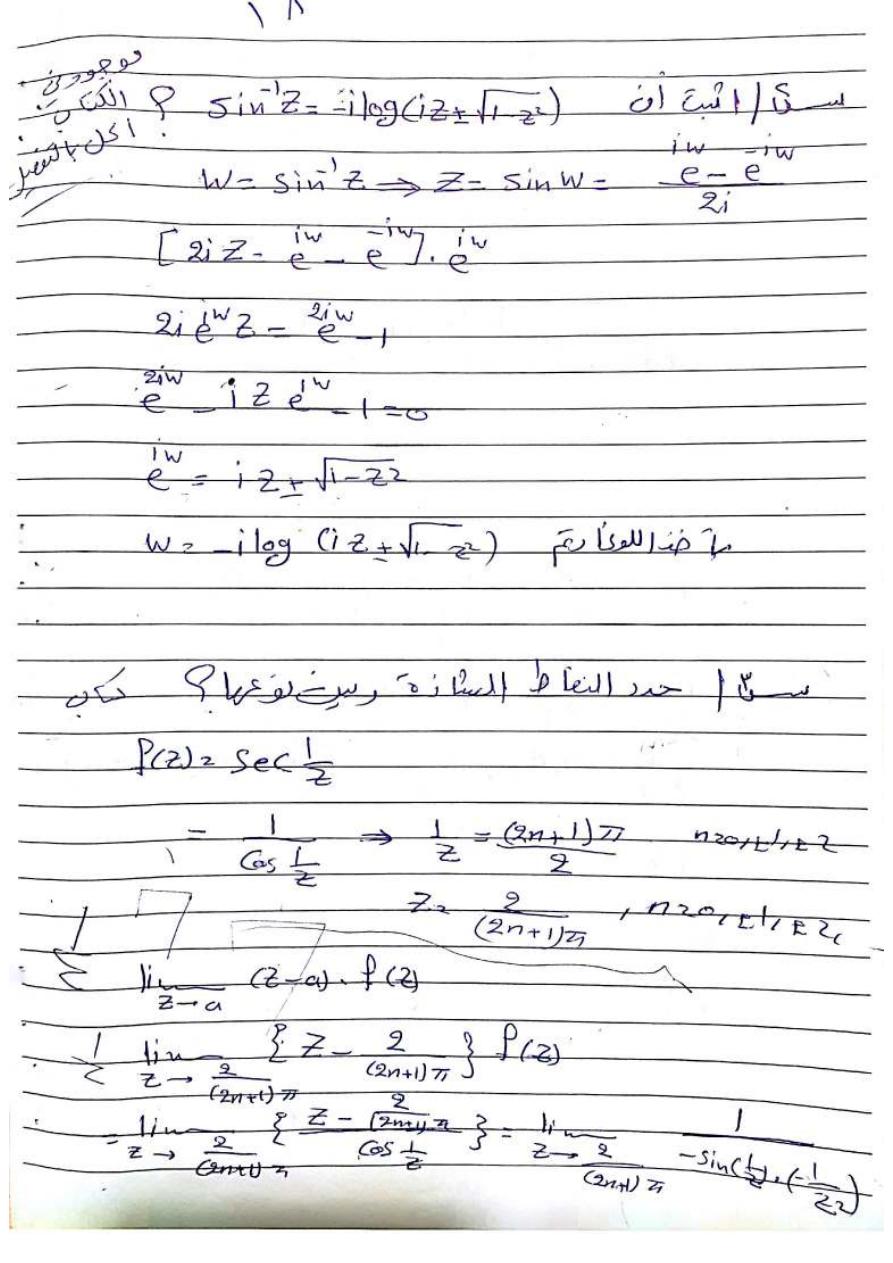 ١٨
موجود في
الكتاب
س٢/ اثبت أن sin⁻¹z = -i log(iz ± √1-z²) ؟
w = sin⁻¹z ⇒ z = sin w = (e^{iw} - e^{-iw}) / 2i
[2iz - e^{iw} - e^{-iw}] . e^{iw}
2i e^{iw} z = e^{2iw} - 1
e^{2iw} - i z e^{iw} - 1 = 0
e^{iw} = iz ± √1-z²
w = -i log (iz ± √1-z²) بأخذ اللوغارتم
س٣/ حدد النقاط الشاذة وبين نوعها ؟
f(z) = sec 1/z
= 1 / cos 1/z ⇒ 1/z = (2n+1)π / 2 n=0,±1,±2
z = 2 / (2n+1)π , n=0,±1,±2,
lim_{z→a} (z-a) . f(z)
lim_{z→ 2/(2n+1)π} { z - 2/(2n+1)π } f(z)
= lim_{z→ 2/(2n+1)π} { (z - 2/(2n+1)π) / cos 1/z } = lim_{z→ 2/(2n+1)π} 1 / (-sin(1/z) . (-1/z²))